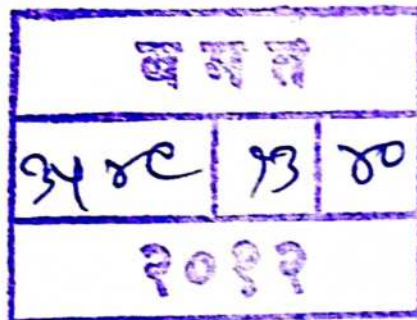 ३५४९ १३ ४०
२०१२